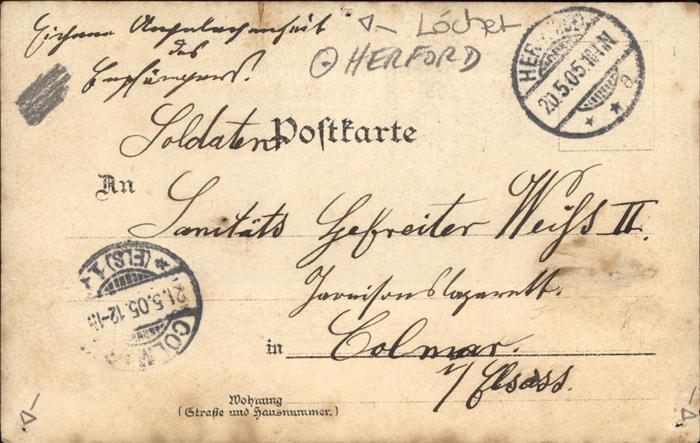 Eigene Angelegenheit
des
Empfängers!
Löcher
HERFORD
20.5.05.
Soldaten Postkarte
An
Sanitäts Gefreiter Weiss II.
Garnisonslazarett.
in Colmar.
i/Elsass.
(ELS) 1
21.5.05.12-1
COLM
Wohnung
(Straße und Hausnummer.)